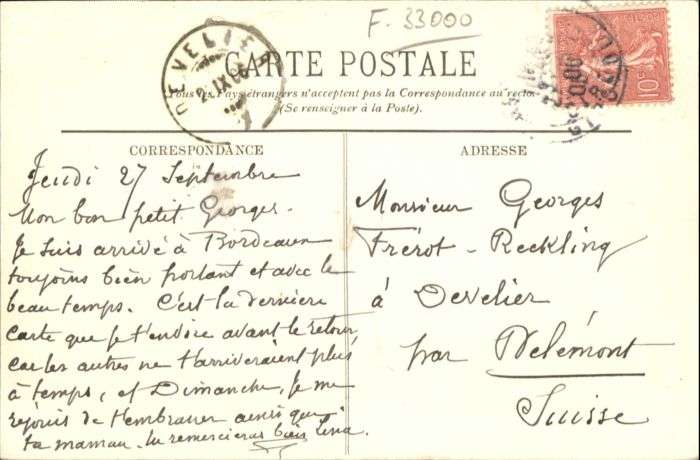 F. 33000
DEVELIER
CARTE POSTALE
Tous les Pays étrangers n'acceptent pas la Correspondance au recto
(Se renseigner à la Poste).
CORRESPONDANCE
Jeudi 27 Septembre
Mon bon petit Georges.
Je suis arrivé à Bordeaux
toujours bien portant et avec le
beau temps. C'est la dernière
carte que je t'envoie avant le retour
car les autres ne t'arriveraient plus
à temps, et Dimanche, je me
réjouis de t'embrasser ainsi que
ta maman. tu remercieras bien Lina.
ADRESSE
Monsieur Georges
Frérot-Reckling
à Develier
par Delémont
Suisse
10